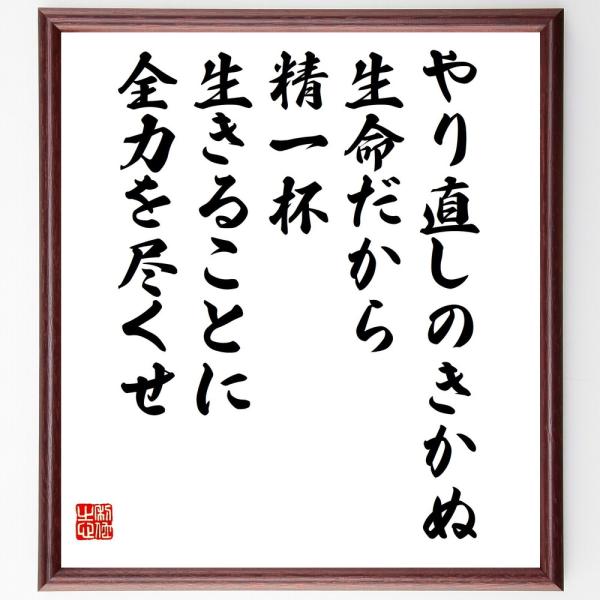 やり直しのきかぬ
生命だから
精一杯
生きることに
全力を尽くせ